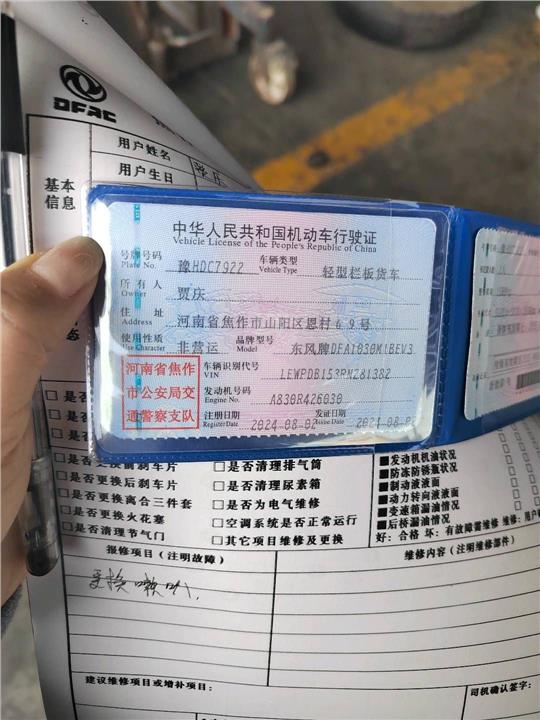 DFAC
用户姓名
用户生日
基本
信息
中华人民共和国机动车行驶证
Vehicle License of the People's Republic of China
号牌号码 豫HDC7922 车辆类型 轻型栏板货车
Plate No. Vehicle Type
所有人 贾庆
Owner
住址 河南省焦作市山阳区恩村69号
Address
使用性质 非营运 品牌型号 东风牌DFA1030M1BEV3
Use Character Model
河南省焦作
市公安局交
通警察支队
车辆识别代号 LEWPDB153RN281382
VIN
发动机号码 A830R426030
Engine No.
注册日期 2024-08-02 发证日期 2024-08-
Register Date Issue Date
是否更换前刹车片 是否清理排气筒 发动机机油状况
是否更换后刹车片 是否清理尿素箱 防冻防锈瓶状况
是否更换离合三件套 是否为电气维修 制动液液面
是否更换火花塞 空调系统是否正常运行 动力转向液液面
是否清理节气门 其它项目维修及更换 变速箱漏油情况
后桥漏油情况
好：合格 坏：有故障需维修 维修：用户
报修项目（注明故障） 维修内容（注明维修部件）
更换喇叭
建议维修项目或增补项目： 司机确认签字：